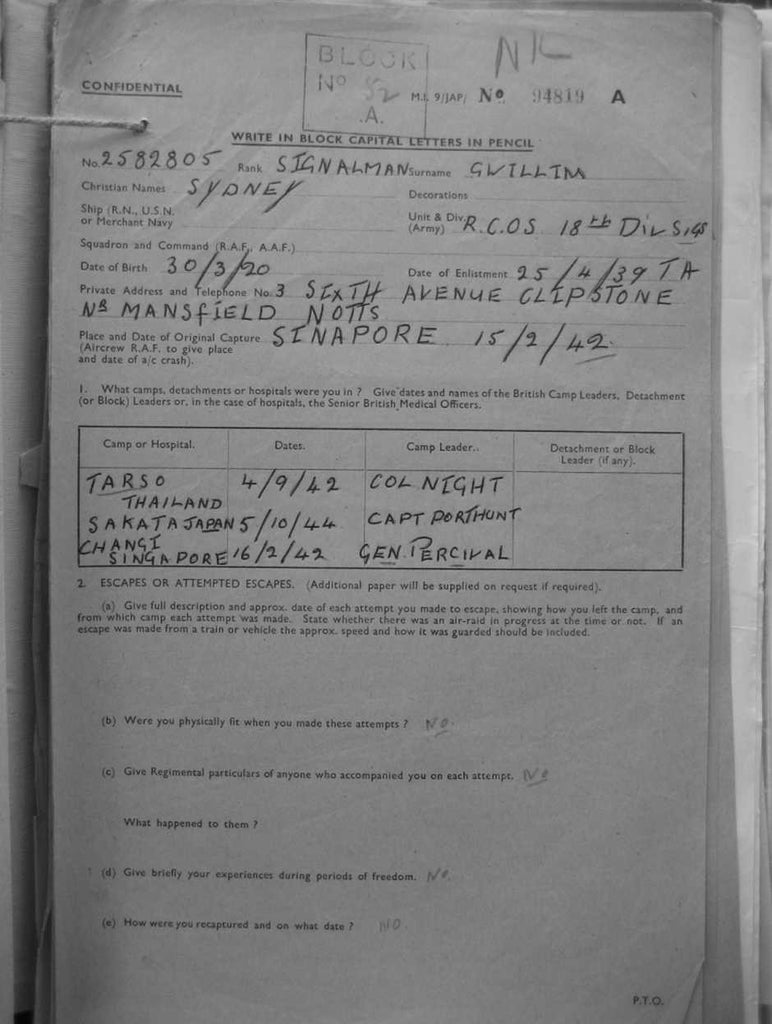 BLOCK
No 52
.A.
NIL
CONFIDENTIAL
M.I. 9/JAP/ No 94819 A
WRITE IN BLOCK CAPITAL LETTERS IN PENCIL
No. 2582805 Rank SIGNALMAN Surname GWILLIM
Christian Names SYDNEY Decorations
Ship (R.N., U.S.N. or Merchant Navy
Unit & Div. (Army) R.C.OS 18th DIV SIGS
Squadron and Command (R.A.F., A.A.F.)
Date of Birth 30/3/20 Date of Enlistment 25/4/39 TA
Private Address and Telephone No. 3 SIXTH AVENUE CLIPSTONE
NR MANSFIELD NOTTS
Place and Date of Original Capture SINAPORE 15/2/42.
(Aircrew R.A.F. to give place
and date of a/c crash).
1. What camps, detachments or hospitals were you in ? Give dates and names of the British Camp Leaders, Detachment
(or Block) Leaders or, in the case of hospitals, the Senior British Medical Officers.
Camp or Hospital. Dates. Camp Leader. Detachment or Block
Leader (if any).
TARSO 4/9/42 COL NIGHT
THAILAND
SAKATA JAPAN 5/10/44 CAPT PORTHUNT
CHANGI
SINGAPORE 16/2/42 GEN. PERCIVAL
2. ESCAPES OR ATTEMPTED ESCAPES. (Additional paper will be supplied on request if required).
(a) Give full description and approx. date of each attempt you made to escape, showing how you left the camp, and
from which camp each attempt was made. State whether there was an air-raid in progress at the time or not. If an
escape was made from a train or vehicle the approx. speed and how it was guarded should be included.
(b) Were you physically fit when you made these attempts ? NO.
(c) Give Regimental particulars of anyone who accompanied you on each attempt. NO
What happened to them ?
(d) Give briefly your experiences during periods of freedom. NO.
(e) How were you recaptured and on what date ? NO.
P.T.O.